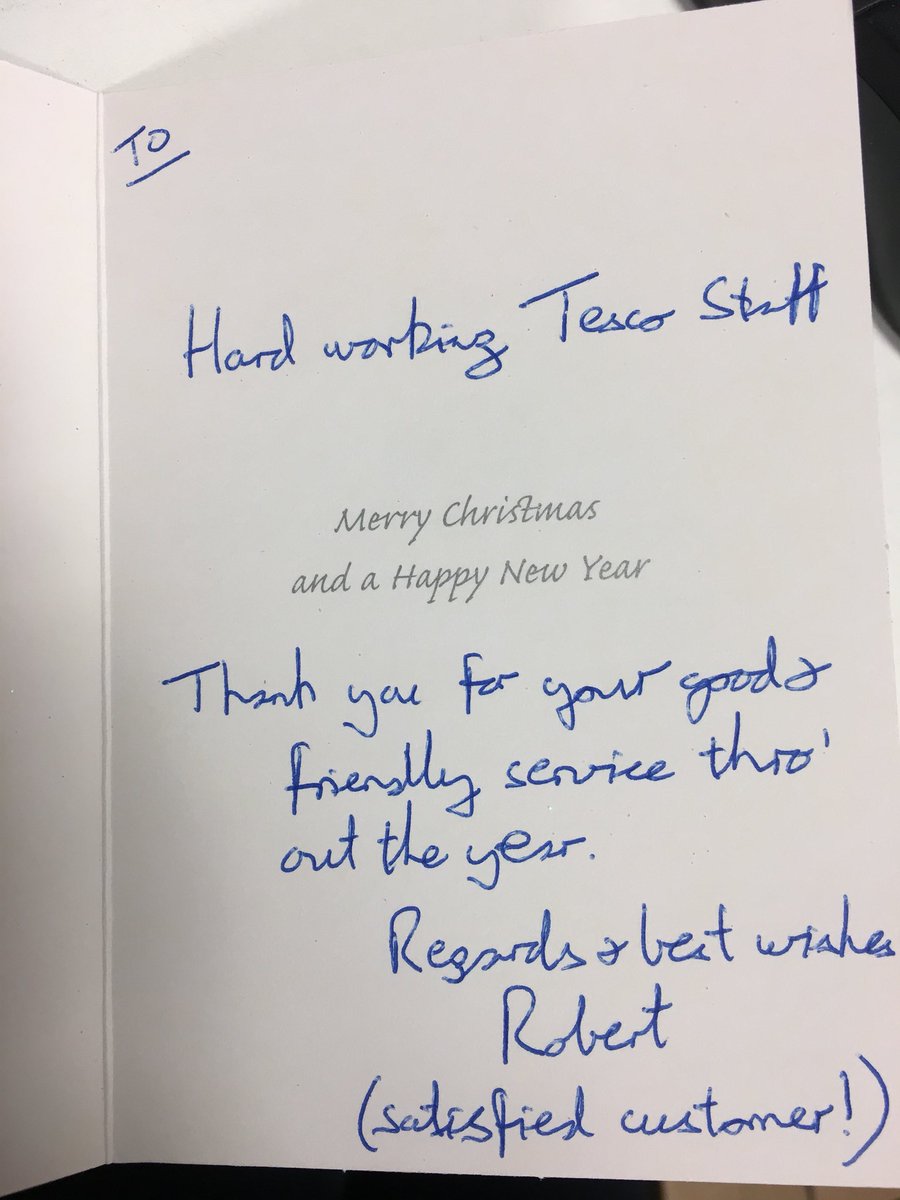 TO
Hard working Tesco Staff
Merry Christmas
and a Happy New Year
Thank you for your good &
friendly service thro'
out the year.
Regards & best wishes
Robert
(satisfied customer!)